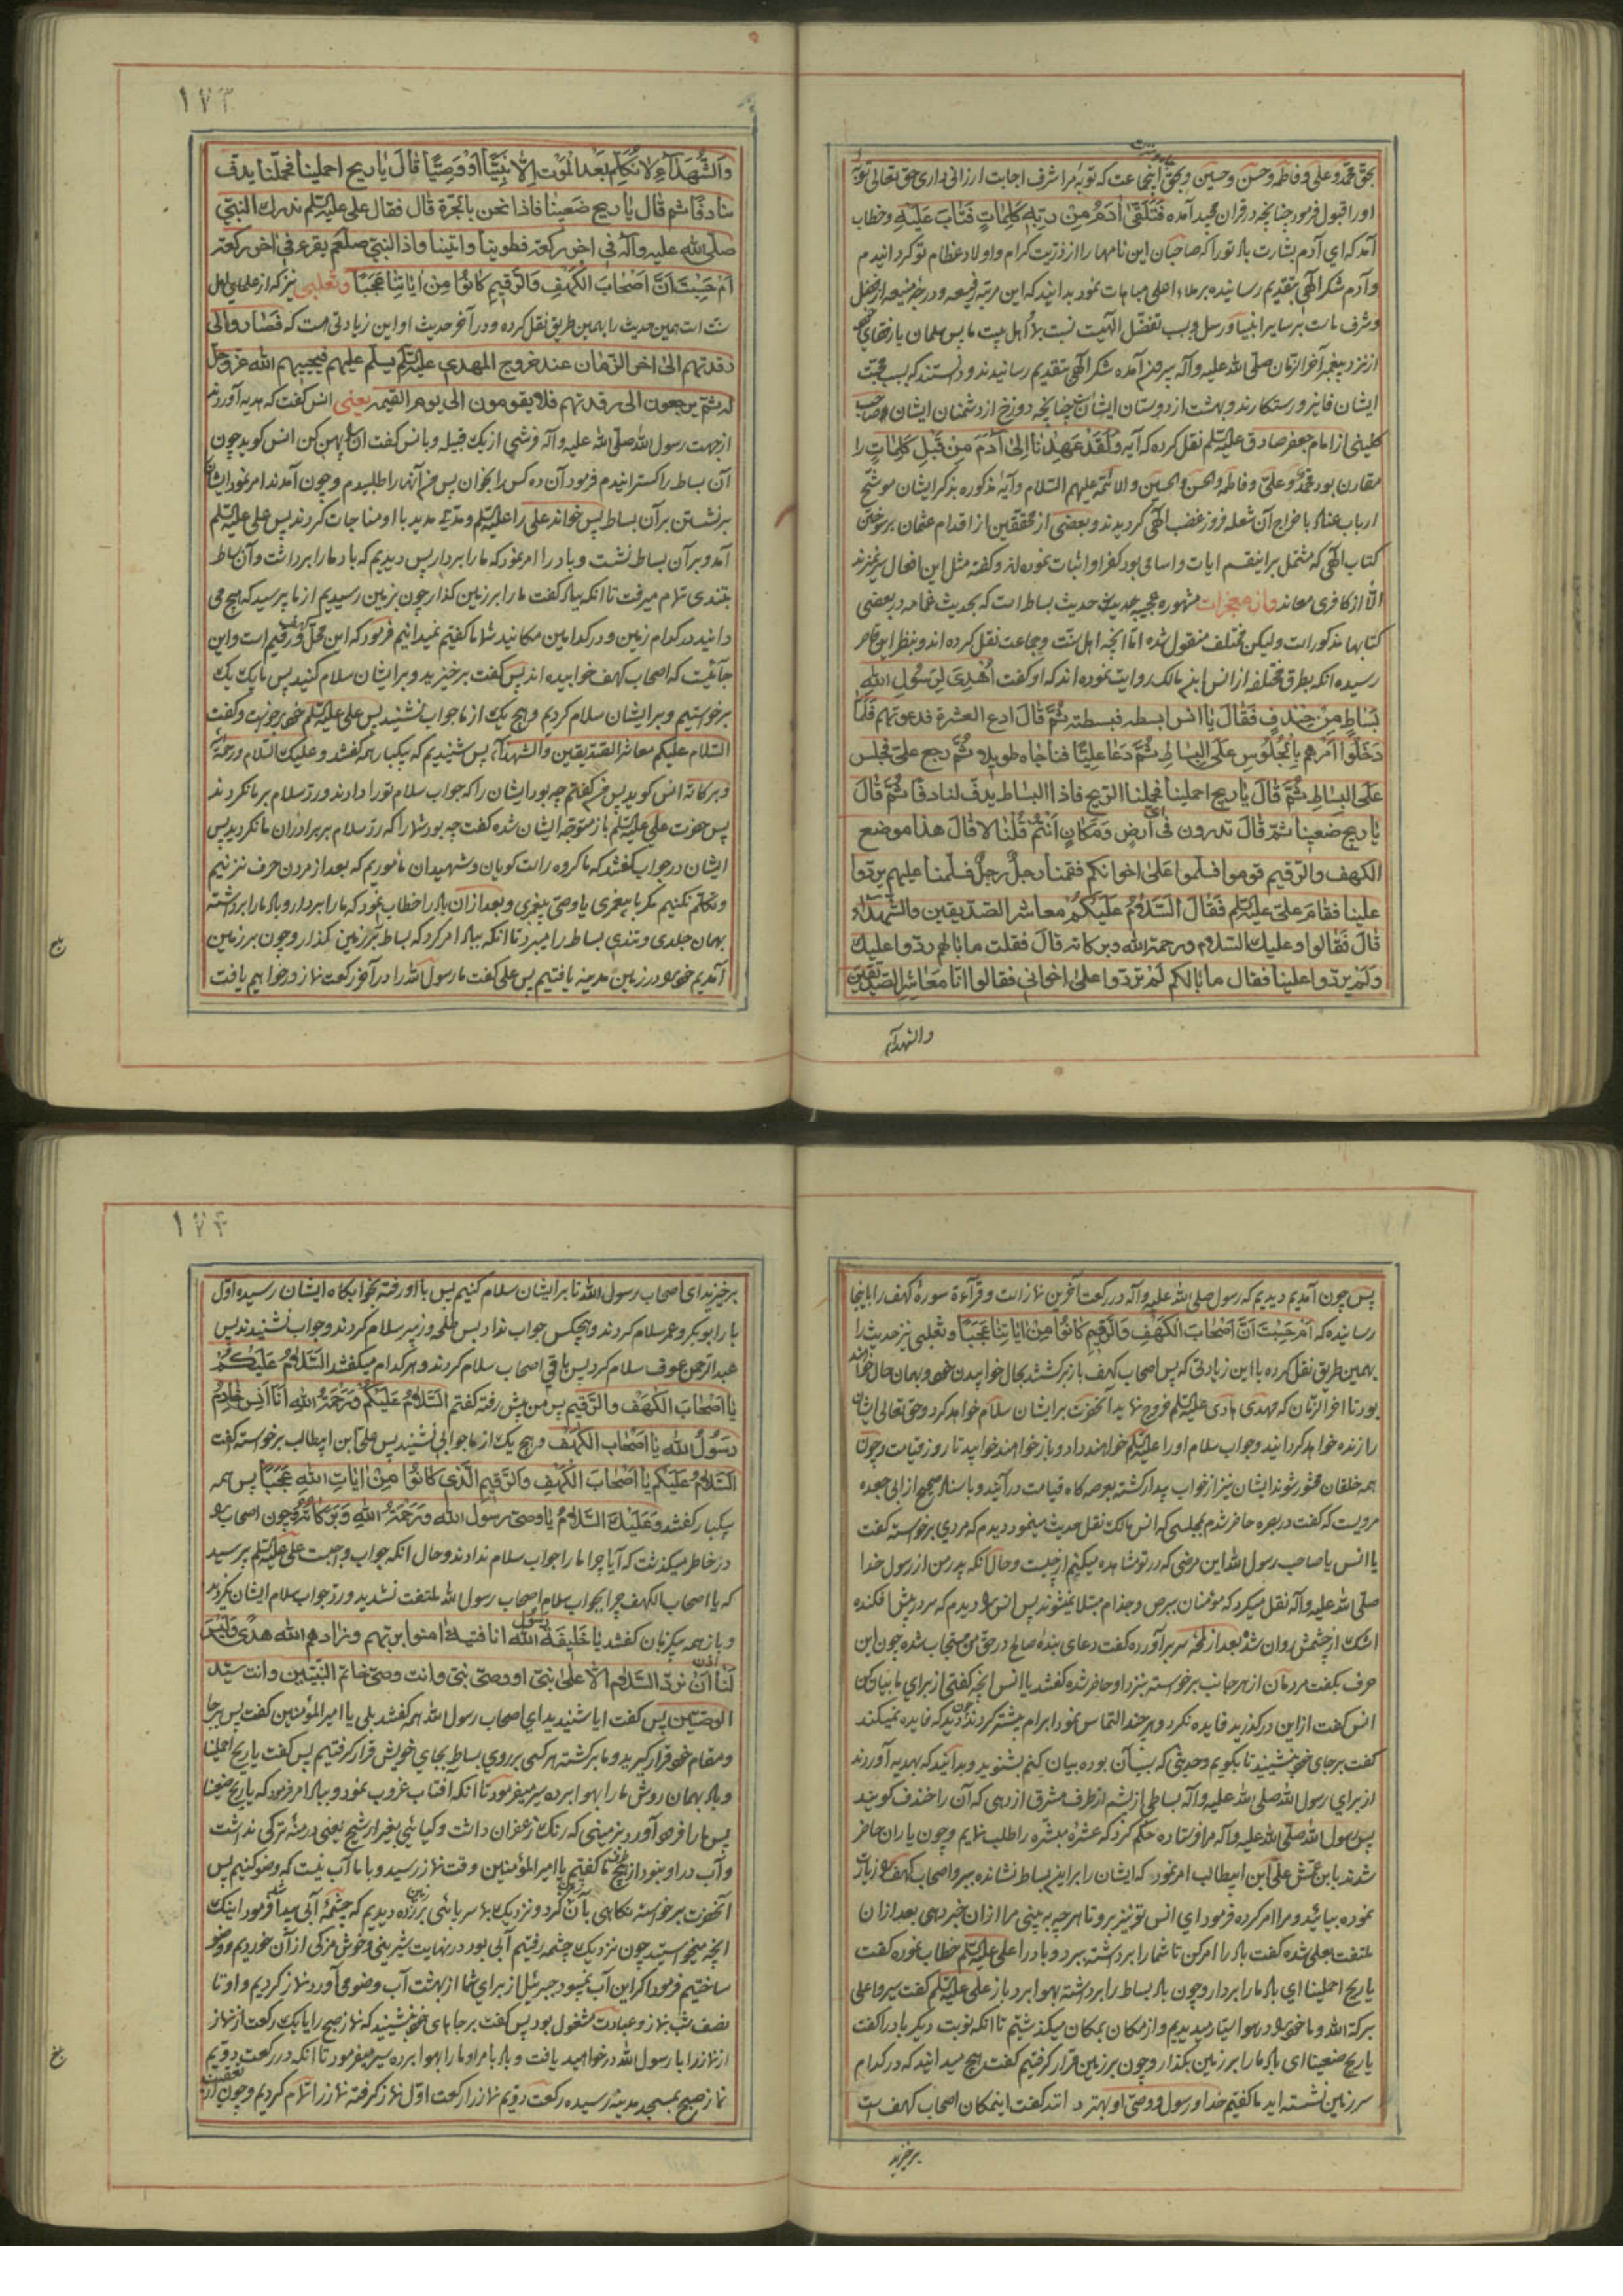 بحق محمد و علی و فاطمه و حسن و حسین و بحق آنجماعت که توبهٔ مرا شرف اجابت ارزانی داری حق تعالی توبهٔ
او را قبول فرمود چنانچه در قران مجید آمده فَتَلَقّیٰ اٰدَمُ مِنْ رَبِّهٖ کَلِمَاتٍ فَتَابَ عَلَیْهِ و خطاب
آمد که ای آدم بشارت باد تو را که صاحبان این نامها را از ذریت کرام و اولاد عظام تو کردانیدم
و آدم شکر الهی بتقدیم رسانیده بر ملاء اعلی مباهات نمود بدانید که این مرتبه رفیعه و درجه منیعه از فضل
و شرف بر سایر انبیا و رسل و بسبب تفضّل الهیست نسبت باهل بیت ما پس سلمان یا
از نزد پیغمبر آخر الزمان صلّی اللّه علیه و آله بیرون آمده شکر الهی بتقدیم رسانیدند و دانستند که بسبب محبت
ایشان فایز و رستکارند و بهشت از دوستان ایشان چنانچه دوزخ از دشمنان ایشان و صاحب
کلینی از امام جعفر صادق علیه السّلم نقل کرده که آیه وَلَقَدْ عَهِدْنَا اِلیٰ اٰدَمَ مِنْ قَبْلِ کَلِمَاتٍ را
مقارن بود بمحمد و علی و فاطمه والحسن والحسین والائمّة علیهم السّلام و آیهٔ مذکوره بذکر ایشان موشّح
ارباب عناد باخراج آن شعله فروز غضب الهی کردیدند و بعضی از محققین از اقدام عثمان بر سوختن
کتاب الهی که مشتمل بر اینقسم ایات و اسامی بود کفر او اثبات نموده‌اند و کفته مثل این افعال سر نمیزند
الّا از کافری معاند و از معجزات مشهوره عجیبه حدیث بساط است که بحدیث غمامه در بعضی
کتابها مذکور است ولیکن مختلف منقول شده امّا آنچه اهل سنّت و جماعت نقل کرده‌اند و بنظر این قاصر
رسیده آنکه بطرق مختلفه از انس ابن مالک روایت نموده‌اند که او کفت اُهْدِیَ لِرَسُولِ اللّٰهِ
بَسَاطٍ مِنْ خِنْدِفٍ فَقَالَ یٰا انس ابسطه فبسطته ثُمَّ قَالَ ادع العشرة فدعوتهم فَلَمَّا
دَخَلُوا اَمَرَهُم بِالْجُلُوسِ عَلَی البِسَاطِ ثُمَّ دَعَا عَلِیًّا فناجاه طویلا ثُمَّ رجع علیّ فجلس
عَلَی البِسَاطِ ثُمَّ قَالَ یٰا ریح احملینا فحملنا الرّیح فاذا البساط یدفّ لنا دفّا ثُمَّ قَالَ
یٰا ریح ضعینا ثمّ قال تدرون فی ایّ اَرضٍ وَ مَکٰانٍ اَنْتُم قُلْنٰا لا قَالَ هذا موضع
الکهف والرّقیم قوموا فسلّموا عَلیٰ اخوانکم فقمنا رجلٌ رجلٌ فسلّمنا علیهم یردّوا
علینا فقامَ علیّ علیه السّلم فَقَالَ السَّلٰامُ عَلَیْکُمْ معاشر الصّدّیقین والشّهداء
قالَ فَقَالُوا و علیک السّلام و رحمة اللّه و برکاته قالَ فقلت ما بالهم ردّوا علیک
وَلَمْ یردّوا علینا فقال ما بالکم لَمْ تردّوا علیٰ اخوانی فقالوا انّا معَاشِر الصّدّیقین
والشهدآء
۱۷۳
وَالشُّهَدَآءِ لاٰ نُکَلِّم بَعْدَ الْمَوْت اِلّا نَبِیًّا اَوْ وَصِیًّا قٰالَ یٰا ریح احملینا فحملنا یدفّ
بنا دفّا ثم قال یٰا ریح ضعینا فاذا نحن بالحرّة قال فقال علی علیه السّلم ندرك النبیّ
صلّی اللّه علیه و آله فی اخر رکعة فطوینا و اتینا و اذا النبیّ صلعم یقرء فی اخر رکعة
اَمْ حَسِبْتَ اَنَّ اَصْحٰابَ الْکَهْفِ وَالرَّقِیمِ کٰانُوا مِنْ اٰیٰاتِنٰا عَجَبًا و ثعلبی نیز که از علمای اهل
سنّت است همین حدیث را بهمین طریق نقل کرده و در آخر حدیث او این زیادتی هست که فَصَاروا الی
رقدتهم الیٰ اخر الزّمان عند خروج المهدی علیه السّلم یسلّم علیهم فیحییهم اللّه عزّوجلّ
له ثمّ یرجعون الی رقدتهم فلا یقومون الی یوم القیمة یعنی انس کفت که هدیه آوردند
از جهت رسول اللّه صلّی اللّه علیه و آله فرشی از یک قبیله و بانس کفت آن را پهن کن انس کوید چون
آن بساط را کسترانیدم فرمود آن ده کس را بخوان پس من آنها را طلبیدم و چون آمدند امر نمود ایشان را
بر نشستن بر آن بساط پس خواند علی را علیه السّلم و مدّت مدید با او مناجات کردند پس علی علیه السّلم
آمد و بر آن بساط نشست و باد را امر نمود که ما را بردار پس دیدیم که باد ما را برداشت و آن بساط
بتندی تمام میرفت تا آنکه بباد کفت ما را بر زمین کذار چون بزمین رسیدیم از ما پرسید که هیچ می
دانید در کدام زمین و در کدامین مکانید شما ما کفتیم نمیدانیم فرمود که این محلّ کهف و رقیم است و این
جائیست که اصحاب کهف خوابیده‌اند پس کفت برخیزید و بر ایشان سلام کنید پس ما یک یک
برخواستیم و بر ایشان سلام کردیم و هیچ یک از ما جواب نشنید پس علی علیه السّلم خود برخواست و کفت
السّلام علیکم معاشر الصّدّیقین والشّهدآء پس شنیدیم که بیکبار همه کفتند و علیک السّلام و رحمة اللّه
و برکاته انس کوید پس من کفتم چه بود ایشان را که جواب سلام تو را دادند و ردّ سلام بر ما نکردند
پس حضرت علی علیه السّلم باز متوجّه ایشان شده کفت چه بود شما را که ردّ سلام بر برادران ما نکردید پس
ایشان در جواب کفتند که ما کروه راست کویان و شهیدان ماموریم که بعد از مردن حرف نزنیم
و تکلّم نکنیم مکر با پیغمبری یا وصیّ پیغمبری و بعد از آن باد را خطاب نمود که ما را بردار و باد ما را برداشته
بهمان جلدی و تندی بساط را میبرد تا آنکه بباد امر کرد که بساط بر زمین کذار و چون بر زمین
آمدیم خود را در زمین مدینه یافتیم پس علی کفت ما رسول اللّه را در آخر رکعت نماز در خواهیم یافت
پس چون آمدیم دیدیم که رسول صلی اللّه علیه و آله در رکعت آخرین نماز است و قرآءة سورهٔ کهف را باینجا
رسانیده که اَمْ حَسِبْتَ اَنَّ اَصْحٰابَ الْکَهْفِ وَالرَّقِیمِ کٰانُوا مِنْ اٰیٰاتِنٰا عَجَبًا و ثعلبی نیز حدیث را
بهمین طریق نقل کرده با این زیادتی که پس اصحاب کهف باز برکشتند بحال خوابیدن خود و بهمان حال خواهند
بود تا اخر الزّمان که مهدی هادی علیه السّلم خروج نماید آنحضرت بر ایشان سلام خواهد کرد و حق تعالی ایشان
را زنده خواهد کردانید و جواب سلام او را علیه السّلم خواهند داد و باز خواهند خوابید تا روز قیامت و چون
همه خلقان محشور شوند ایشان نیز از خواب بیدار کشته بعرصه کاه قیامت در آیند و باسناد صحیح از ابی جعده
مرویست که کفت در بصره حاضر شدم بمجلسی که انس مالک نقل حدیث مینمود دیدم که مردی برخواسته کفت
یا انس یا صاحب رسول اللّه این مرضی که در تو مشاهده میکنم از چیست و حال آنکه پدر من از رسول خدا
صلّی اللّه علیه و آله نقل میکرد که مؤمنان ببرص و جذام مبتلا نمیشوند پس انس را دیدم که سر در پیش افکنده
اشک از چشمش روان شد و بعد از لمحه سر بر آورده کفت دعای بندهٔ صالح در حق من مستجاب شده چون این
حرف بکفت مردمان از هر جانب برخواسته بنزد او حاضر شده کفتند یا انس انچه کفتی از برای ما بیان کن
انس کفت از این درکذرید فایده نکرد و هر چند التماس نمود ابرام بیشتر کردند چون دید که فایده نمیکند
کفت بر جای خود بنشینید تا بکویم و حدیثی که بسبب آن بوده بیان کنم بشنوید و بدانید که بهدیه آوردند
از برای رسول اللّه صلی اللّه علیه و آله بساطی از پشم از طرف مشرق از دهی که آن را خندف کویند
پس رسول اللّه صلّی اللّه علیه و آله مرا فرستاده حکم کرد که عشرهٔ مبشّره را طلب نمایم و چون یاران حاضر
شدند بابن عمّش علیّ ابن ابیطالب امر نمود که ایشان را بر این بساط نشانده ببر و اصحاب کهف را زیارت
نموده بیائید و مرا امر کرده فرمود ای انس تو نیز برو تا هر چه به بینی مرا از آن خبر دهی بعد از آن
ملتفت بعلی شده کفت باد را امر کن تا شما را برداشته ببرد و باد را علی علیه السّلم خطاب نموده کفت
یا ریح احملینا ای باد ما را بردار و چون باد بساط را برداشته بهوا برد باز علی علیه السّلم کفت سیروا علی
برکة اللّه و ما خود را در هوا ایستاد میدیدیم و از مکان بمکان میکذشتیم تا آنکه نوبت دیکر باد را کفت
یا ریح ضعینا ای باد ما را بر زمین بکذار و چون بر زمین قرار کرفتیم کفت هیچ میدانید که در کدام
سر زمین نشسته اید ما کفتیم خدا و رسول و وصیّ او بهتر دانند کفت اینمکان اصحاب کهف است
برخیزید
۱۷۴
برخیزید ای اصحاب رسول اللّه تا بر ایشان سلام کنیم پس با او رفته بخوابکاه ایشان رسیده اوّل
بار ابوبکر و عمر سلام کردند و هیچکس جواب نداد پس طلحه و زبیر سلام کردند و جواب نشنیدند پس
عبد الرحمن عوف سلام کرد پس باقی اصحاب سلام کردند و هر کدام میکفتند السَّلٰامُ عَلَیْکُمْ
یٰا اَصْحٰابَ الْکَهْف والرّقیم پس من پیش رفته کفتم السَّلٰامُ عَلَیْکُمْ وَرَحْمَةُ اللّٰه اَنَا اَنَس خٰادِمُ
رَسُولُ اللّٰه یٰا اَصْحٰابَ الْکَهْف و هیچ یک از ما جوابی نشنید پس علیّ ابن ابیطالب برخواسته کفت
السَّلٰامُ عَلَیْکُمْ یٰا اَصْحٰابَ الْکَهْفِ وَالرَّقِیمِ الَّذی کٰانُوا مِنْ اٰیٰاتِ اللّٰهِ عَجَبًا پس همه
بیکبار کفتند وَعَلَیْكَ السَّلٰامُ یٰا وصیّ رسول اللّه وَرَحْمَةُ اللّٰهِ وَبَرَکٰاتُهُ چون اصحاب را
در خاطر میکذشت که آیا چرا ما را جواب سلام ندادند و حال آنکه جواب واجبست علی علیه السّلم پرسید
که یا اصحاب الکهف چرا بجواب سلام اصحاب رسول اللّه ملتفت نشدید و ردّ جواب سلام ایشان نکردید
و باز همه بیکزبان کفتند یٰا خَلِیفَةَ رسول اللّٰه انا فتیة اٰمنوا بربّهم و زادهم اللّه هدًی وَلَیْسَ
لَنٰا اذن اَنْ نردّ السَّلٰام الّا عَلیٰ نبیّ او وصیّ نبیّ وانت وصیّ خاتم النّبیّین وانت سیّد
الوصیّین پس کفت ایا شنیدید ای اصحاب رسول اللّه همه کفتند بلی یا امیر المؤمنین کفت پس بر جا
و مقام خود قرار کیرید و ما برکشته هر کس بر روی بساط بجای خویش قرار کرفتیم پس کفت یا ریح احملینا
و باد بهمان روش ما را بهوا برده سیر میفرمود تا آنکه افتاب غروب نمود و بباد امر فرمود که یا ریح ضعینا
پس ما را فرود آورد بزمینی که رنک زعفران داشت و کیاهی بغیر از شیح یعنی درمنهٔ ترکی نداشت
و آب در او نبود از هیچ طرف ما کفتیم یا امیر المؤمنین وقت نماز رسید و با ما آب نیست که وضو کنیم پس
آنحضرت برخواسته نکاهی بآن زمین کرد و نزدیک بما سر پائی بر زمین زده دیدیم که چشمهٔ آبی پیدا شد فرمود اینک
انچه میخواستید چون نزدیک چشمه رفتیم آبی بود در نهایت شیرینی و خوش مزکی از آن خوردیم و وضو
ساختیم فرمود اکر این آب نمیبود جبرئیل از برای شما از بهشت آب وضو می‌آورد نماز کردیم و او تا
نصف شب بنماز و عبادت مشغول بود پس کفت بر جاهای خود بنشینید که نماز صبح را یا یک رکعت از نماز
از نماز را با رسول اللّه در خواهید یافت و باد بامر او ما را بهوا برده سیر میفرمود تا آنکه در رکعت دویّم
نماز صبح بمسجد مدینه رسیده رکعت دویّم نماز را رکعت اوّل نماز کرفته نماز را تمام کردیم و چون از تعقیب